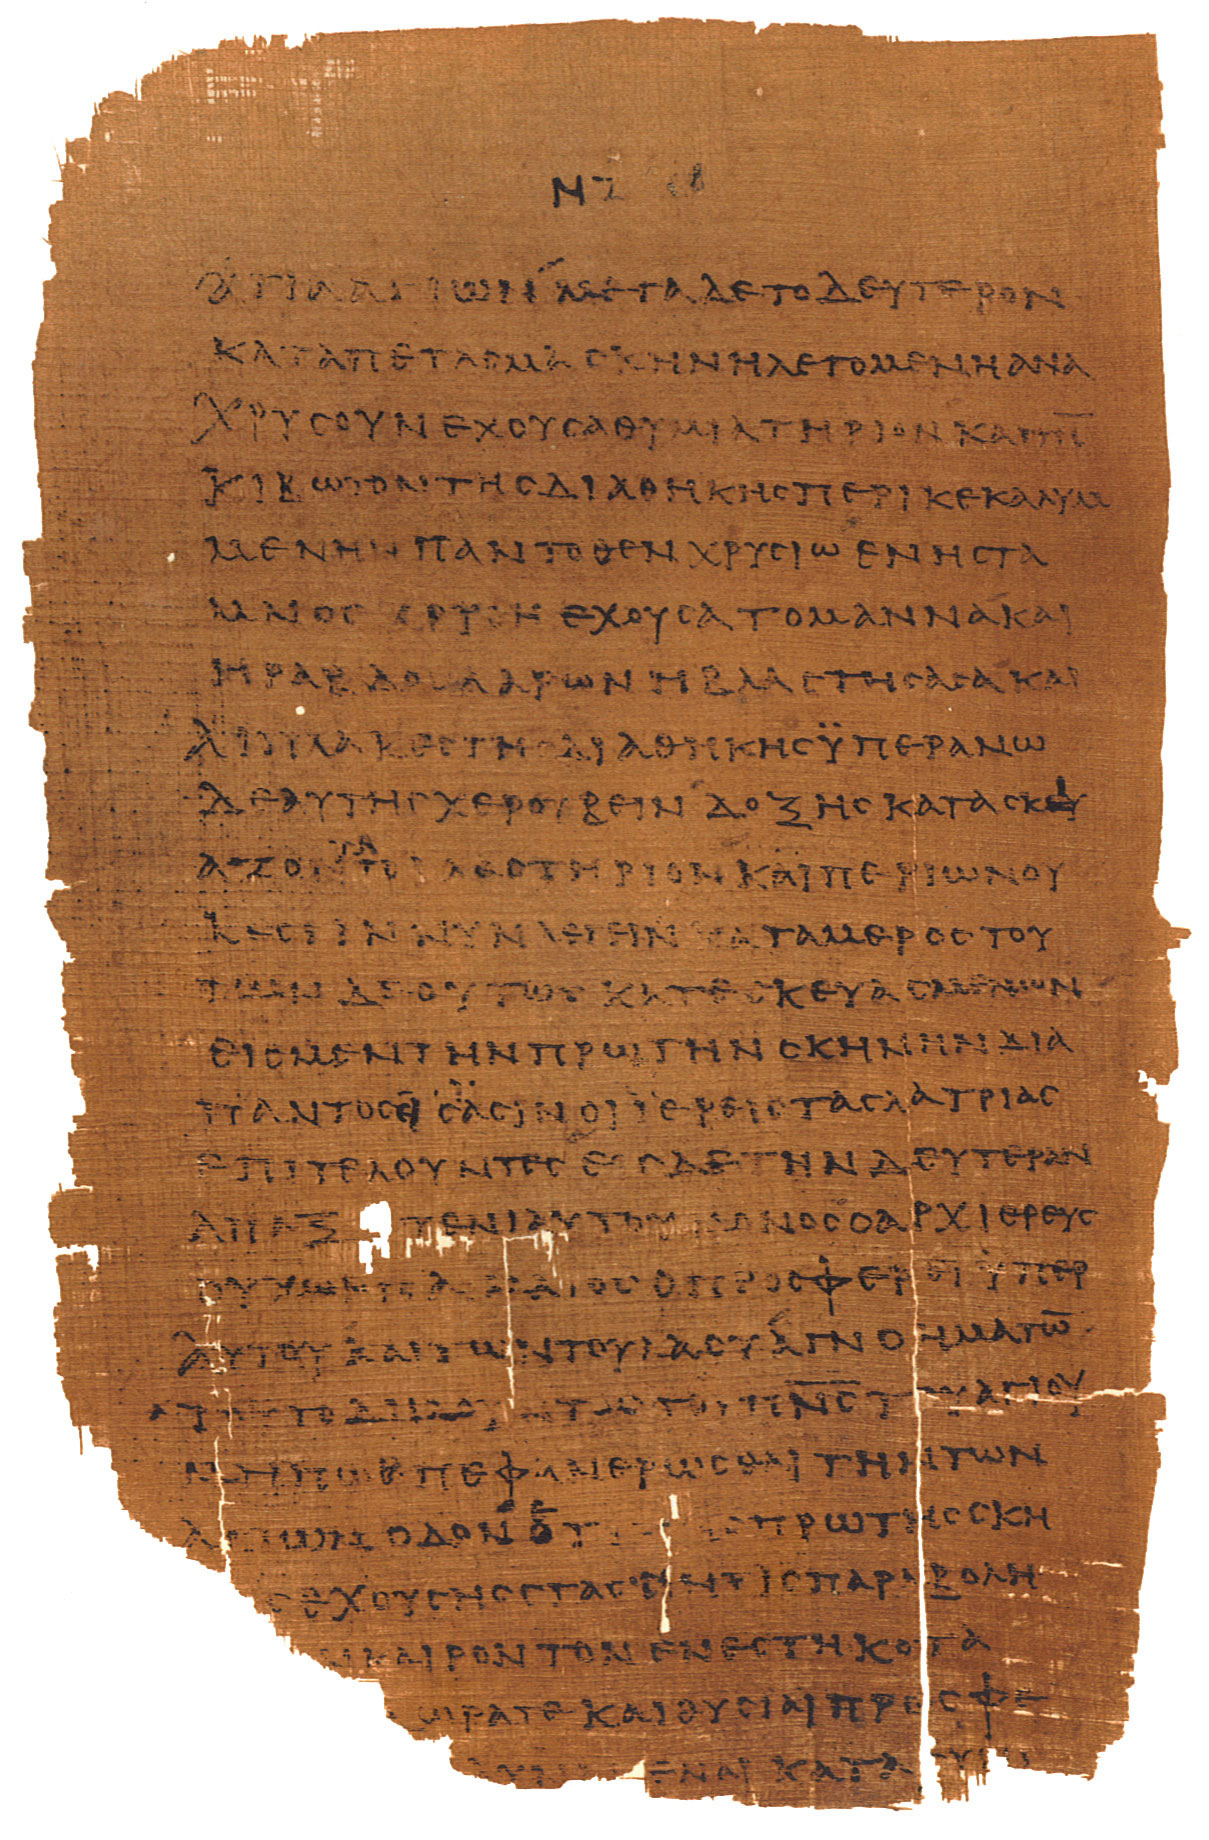 ΝΖ
ΑΓΙΑΑΓΙΩΝΜΕΤΑΔΕΤΟΔΕΥΤΕΡΟΝ
ΚΑΤΑΠΕΤΑϹΜΑϹΚΗΝΗΗΛΕΓΟΜΕΝΗΑΝΑ
ΧΡΥϹΟΥΝΕΧΟΥϹΑΘΥΜΙΑΤΗΡΙΟΝΚΑΙΤΗ̅
ΚΙΒΩΤΟΝΤΗϹΔΙΑΘΗΚΗϹΠΕΡΙΚΕΚΑΛΥΜ
ΜΕΝΗΝΠΑΝΤΟΘΕΝΧΡΥϹΙΩΕΝΗϹΤΑ
ΜΝΟϹΧΡΥϹΗΕΧΟΥϹΑΤΟΜΑΝΝΑΚΑΙ
ΗΡΑΒΔΟϹΑΑΡΩΝΗΒΛΑϹΤΗϹΑϹΑΚΑΙ
ΑΙΠΛΑΚΕϹΤΗϹΔΙΑΘΗΚΗϹΫΠΕΡΑΝΩ
ΔΕΑΥΤΗϹΧΕΡΟΥΒΕΙΝΔΟΞΗϹΚΑΤΑϹΚΕΥ
ΑΖΟΝΤΑΤΟΙΛΑϹΤΗΡΙΟΝΚΑΙΠΕΡΙΩΝΟΥ
ΚΕϹΤΙΝΝΥΝΛΕΓΕΙΝΚΑΤΑΜΕΡΟϹΤΟΥ
ΤΩΝΔΕΟΥΤΩϹΚΑΤΕϹΚΕΥΑϹΜΕΝΩΝ
ΕΙϹΜΕΝΤΗΝΠΡΩΤΗΝϹΚΗΝΗΝΔΙΑ
ΠΑΝΤΟϹΕΙϹΪΑϹΙΝΟΙΙΕΡΕΙϹΤΑϹΛΑΤΡΙΑϹ
ΕΠΙΤΕΛΟΥΝΤΕϹΕΙϹΔΕΤΗΝΔΕΥΤΕΡΑΝ
ΑΠΑΞΤΟΥΕΝΙΑΥΤΟΥΜΟΝΟϹΟΑΡΧΙΕΡΕΥϹ
ΟΥΧΩΡΙϹΑΙΜΑΤΟϹΟΠΡΟϹΦΕΡΕΙΫΠΕΡ
ΑΥΤΟΥΚΑΙΤΩΝΤΟΥΛΑΟΥΑΓΝΟΗΜΑΤΩ̅
ΤΟΥΤΟΔΗΛΟΥΝΤΟϹΤΟΥΠΝ̅Ϲ̅ΤΟΥΑΓΙΟΥ
ΜΗΠΩΠΕΦΑΝΕΡΩϹΘΑΙΤΗΝΤΩΝ
ΑΓΙΩΝΟΔΟΝΕΤΙΤΗϹΠΡΩΤΗϹϹΚΗ
ϹΕΧΟΥϹΗϹϹΤΑϹΙΝΗΤΙϹΠΑΡΑΒΟΛΗ
ΝΚΑΙΡΟΝΤΟΝΕΝΕϹΤΗΚΟΤΑ
ΩΡΑΤΕΚΑΙΘΥϹΙΑΙΠΡΟϹΦΕ
ΥΝΑΜΕΝΑΙΚΑΤΑϹΥΝ